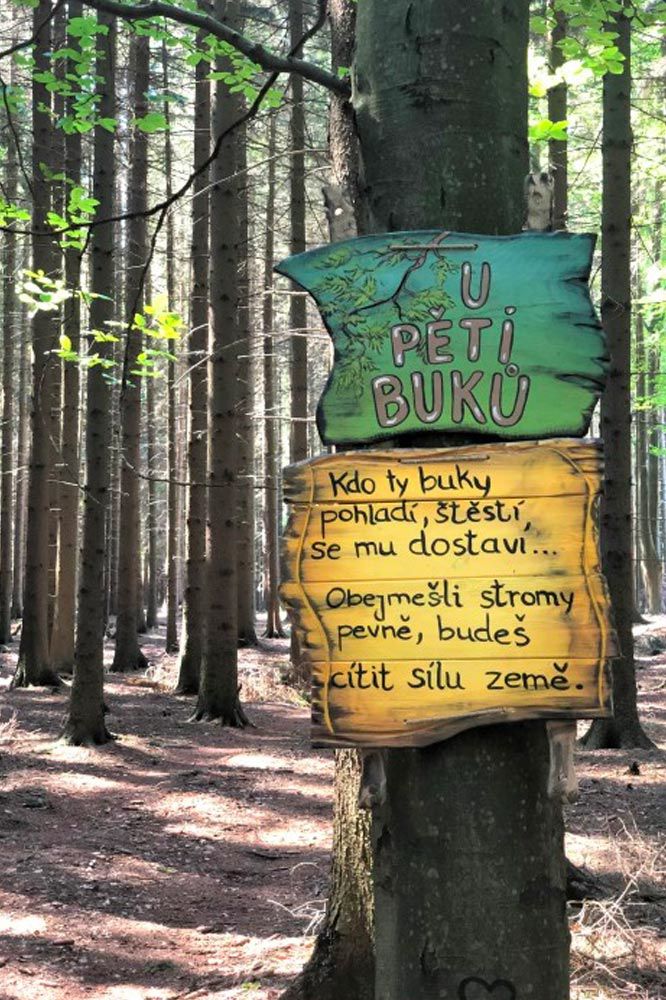 U
PĚTI
BUKŮ
Kdo ty buky
pohladí, štěstí,
se mu dostaví...
Obejmeš-li stromy
pevně, budeš
cítit sílu země.